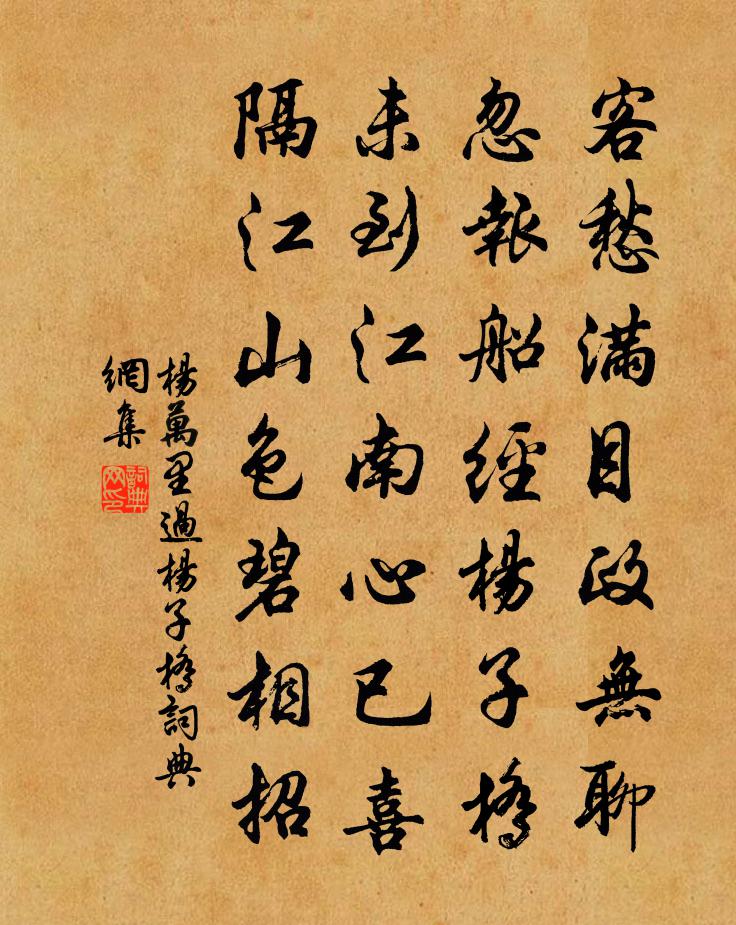 客愁滿目政無聊
忽報船經楊子橋
未到江南心已喜
隔江山色碧相招
楊萬里過楊子橋詞典
網集
詞典
网印